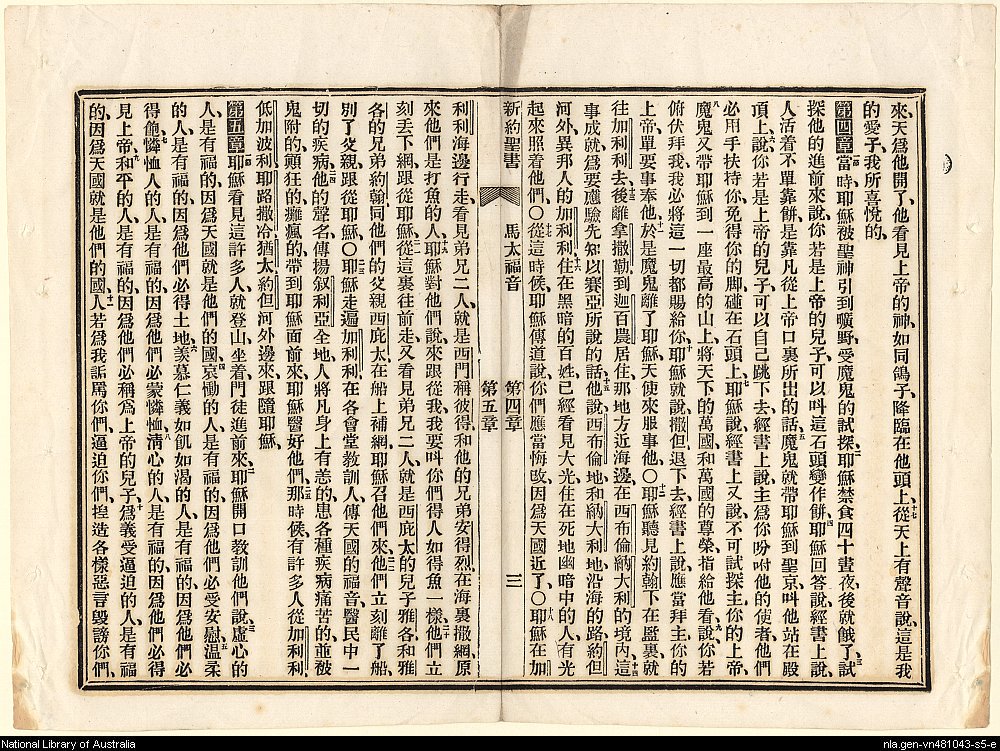 來、天爲他開了、他看見上帝的神、如同鴿子、降臨在他頭上、從天上有聲音說、這是我
的愛子、我所喜悅的、
第四章 當時耶穌被聖神引到曠野、受魔鬼的試探、耶穌禁食四十晝夜、後就餓了、試
探他的進前來說、你若是上帝的兒子、可以叫這石頭變作餅、耶穌回答說、經書上說、
人活着不單靠餅、是靠凡從上帝口裏所出的話、魔鬼就帶耶穌到聖京、叫他站在殿
頂上、說你若是上帝的兒子、可以自己跳下去、經書上說、主爲你吩咐他的使者、他們
必用手扶持你、免得你的脚碰在石頭上、耶穌說、經書上又說、不可試探主你的上帝、
魔鬼又帶耶穌到一座最高的山上、將天下的萬國、和萬國的尊榮、指給他看、說你若
俯伏拜我、我必將這一切都賜給你、耶穌就說、撒但退下去、經書上說、應當拜主你的
上帝、單要事奉他、於是魔鬼離了耶穌、天使來服事他、〇耶穌聽見約翰下在監裏、就
往加利利去、後離拿撒勒、到迦百農居住、那地方近海邊、在西布倫納大利的境內、這
事成就、爲要應驗先知以賽亞所說的話、他說、西布倫地、和納大利地、沿海的路、約但
河外、異邦人的加利利、住在黑暗的百姓、已經看見大光、住在死地幽暗中的人、有光
起來照着他們、〇從這時候、耶穌傳道說、你們應當悔改、因爲天國近了、〇耶穌在加
新約聖書 馬太福音 第四章 第五章 三
利利海邊行走、看見弟兄二人、就是西門稱彼得、和他的兄弟安得烈、在海裏撒網、原
來他們是打魚的人、耶穌對他們說、來跟從我、我要叫你們得人如得魚一樣、他們立
刻丟下網、跟從耶穌、從這裏往前走、又看見弟兄二人、就是西庇太的兒子雅各、和雅
各的兄弟約翰、同他們的父親西庇太、在船上補網、耶穌召他們來、他們立刻離了船、
別了父親、跟從耶穌、〇耶穌走遍加利利、在各會堂教訓人、傳天國的福音、醫民中一
切的疾病、他的聲名傳揚叙利亞全地、人將凡身上有恙的、患各種疾病痛苦的、並被
鬼附的、顚狂的、癱瘋的、帶到耶穌面前來、耶穌醫好他們、那時候、有許多人從加利利、
低加波利、耶路撒冷、猶太、約但河外邊來、跟隨耶穌、
第五章 耶穌看見這許多人、就登山坐着、門徒進前來、耶穌開口教訓他們說、虛心的
人、是有福的、因爲天國就是他們的國、哀慟的人、是有福的、因爲他們必受安慰、溫柔
的人、是有福的、因爲他們必得土地、羨慕仁義如飢如渴的人、是有福的、因爲他們必
得飽、憐恤人的人、是有福的、因爲他們必蒙憐恤、清心的人、是有福的、因爲他們必得
見上帝、和平的人、是有福的、因爲他們必稱爲上帝的兒子、爲義受逼迫的人、是有福
的、因爲天國就是他們的國、人若爲我訴厲你們、逼迫你們、揑造各樣惡言毀謗你們、
National Library of Australia
nla.gen-vn481043-s5-e